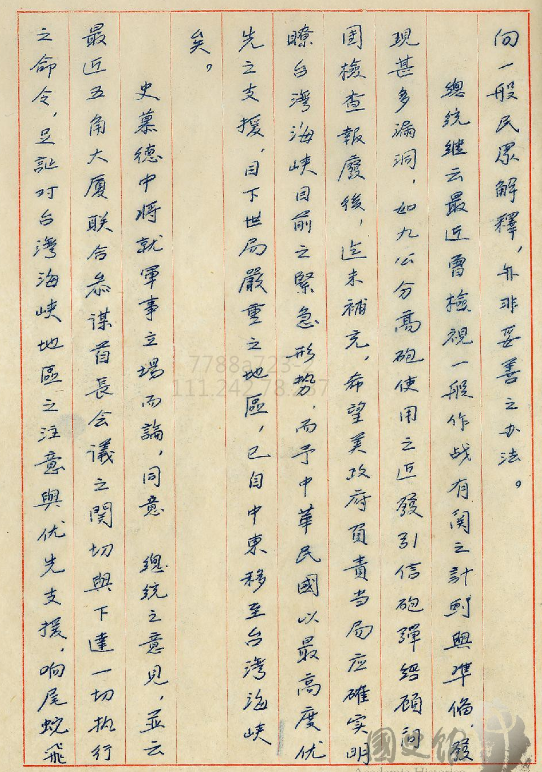 向一般民眾解釋，亦非妥善之办法。
總統继云最近曾檢視一般作战有関之計劃與準备，發
現甚多漏洞，如九公分高砲使用之近發引信砲彈經顧问
团檢查報廢後，迄未補充，希望美政府負責当局应確实明
瞭台灣海峽目前之緊急形势，而予中華民國以最高度优
先之支援，目下世局嚴重之地區，已自中東移至台灣海峽
矣。
史慕德中將就軍事立場而論，同意 總統之意見，並云
最近五角大厦联合参谋首長会議之関切與下達一切执行
之命令，足証对台灣海峽地區之注意與优先支援，响尾蛇飛
7788a723
國史館